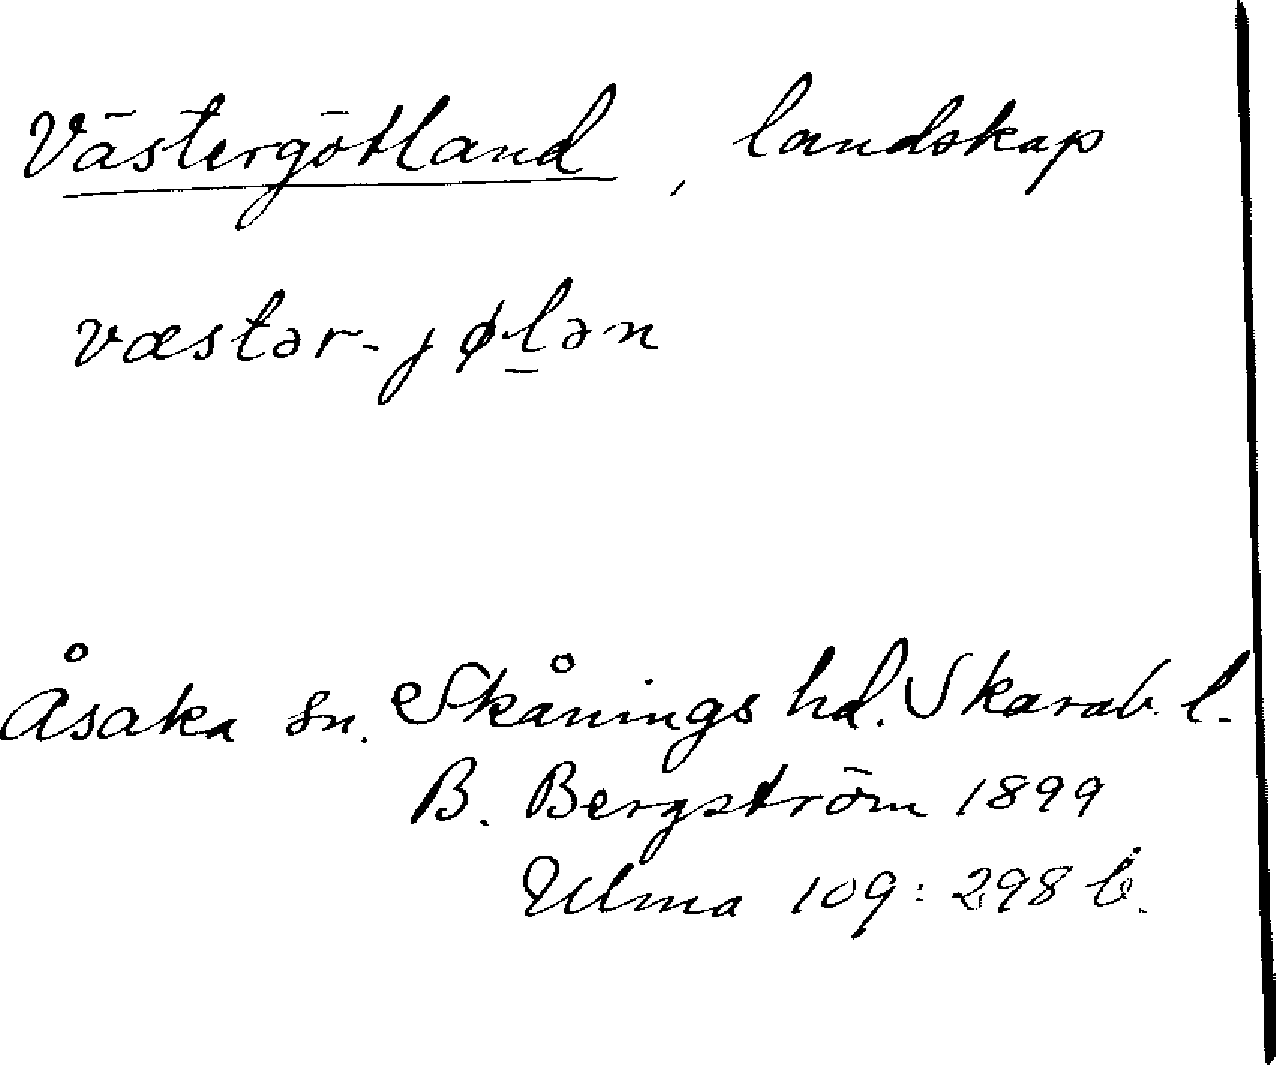 Västergötland, landskap
væstər-jøl̲ən
Åsaka sn. Skånings hd. Skarab. l.
B. Bergström 1899
Ulma 109:298 b.